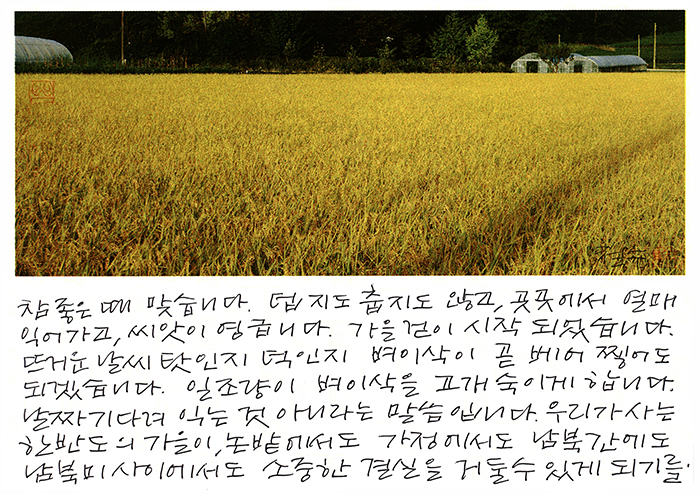 참 좋은 때 맞습니다. 덥지도 춥지도 않고, 곳곳에서 열매
익어가고, 씨앗이 영급니다. 가을걷이 시작 되었습니다.
뜨거운 날씨 탓인지 덕인지 벼이삭이 곧 베어 찧어도
되겠습니다. 일조량이 벼이삭을 고개 숙이게 합니다.
날짜 기다려 익는 것 아니라는 말씀입니다. 우리가 사는
한반도의 가을이, 논밭에서도 가정에서도 남북간에도
남북미 사이에서도 소중한 결실을 거둘 수 있게 되기를.